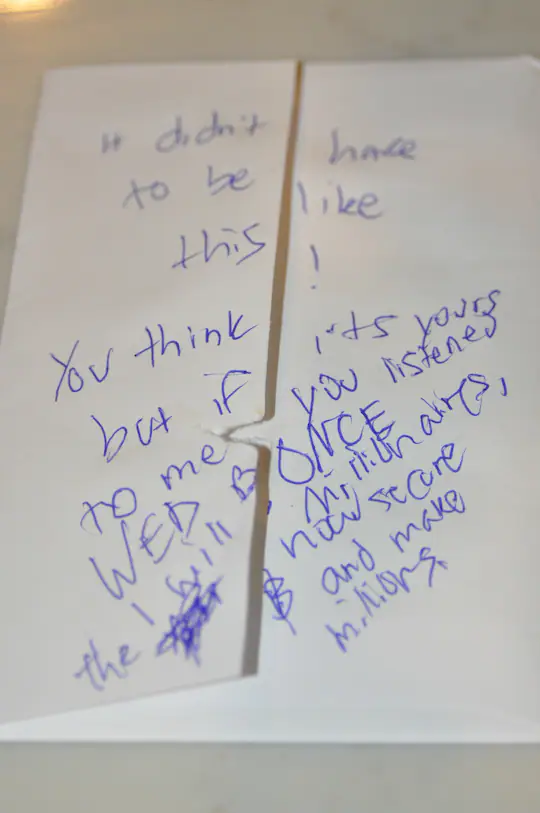 it didn't have
to be like
this !
You think it's yours
but if you listened
to me ONCE
WED B Millionaires,
I will now secure
the $ and make
millions.